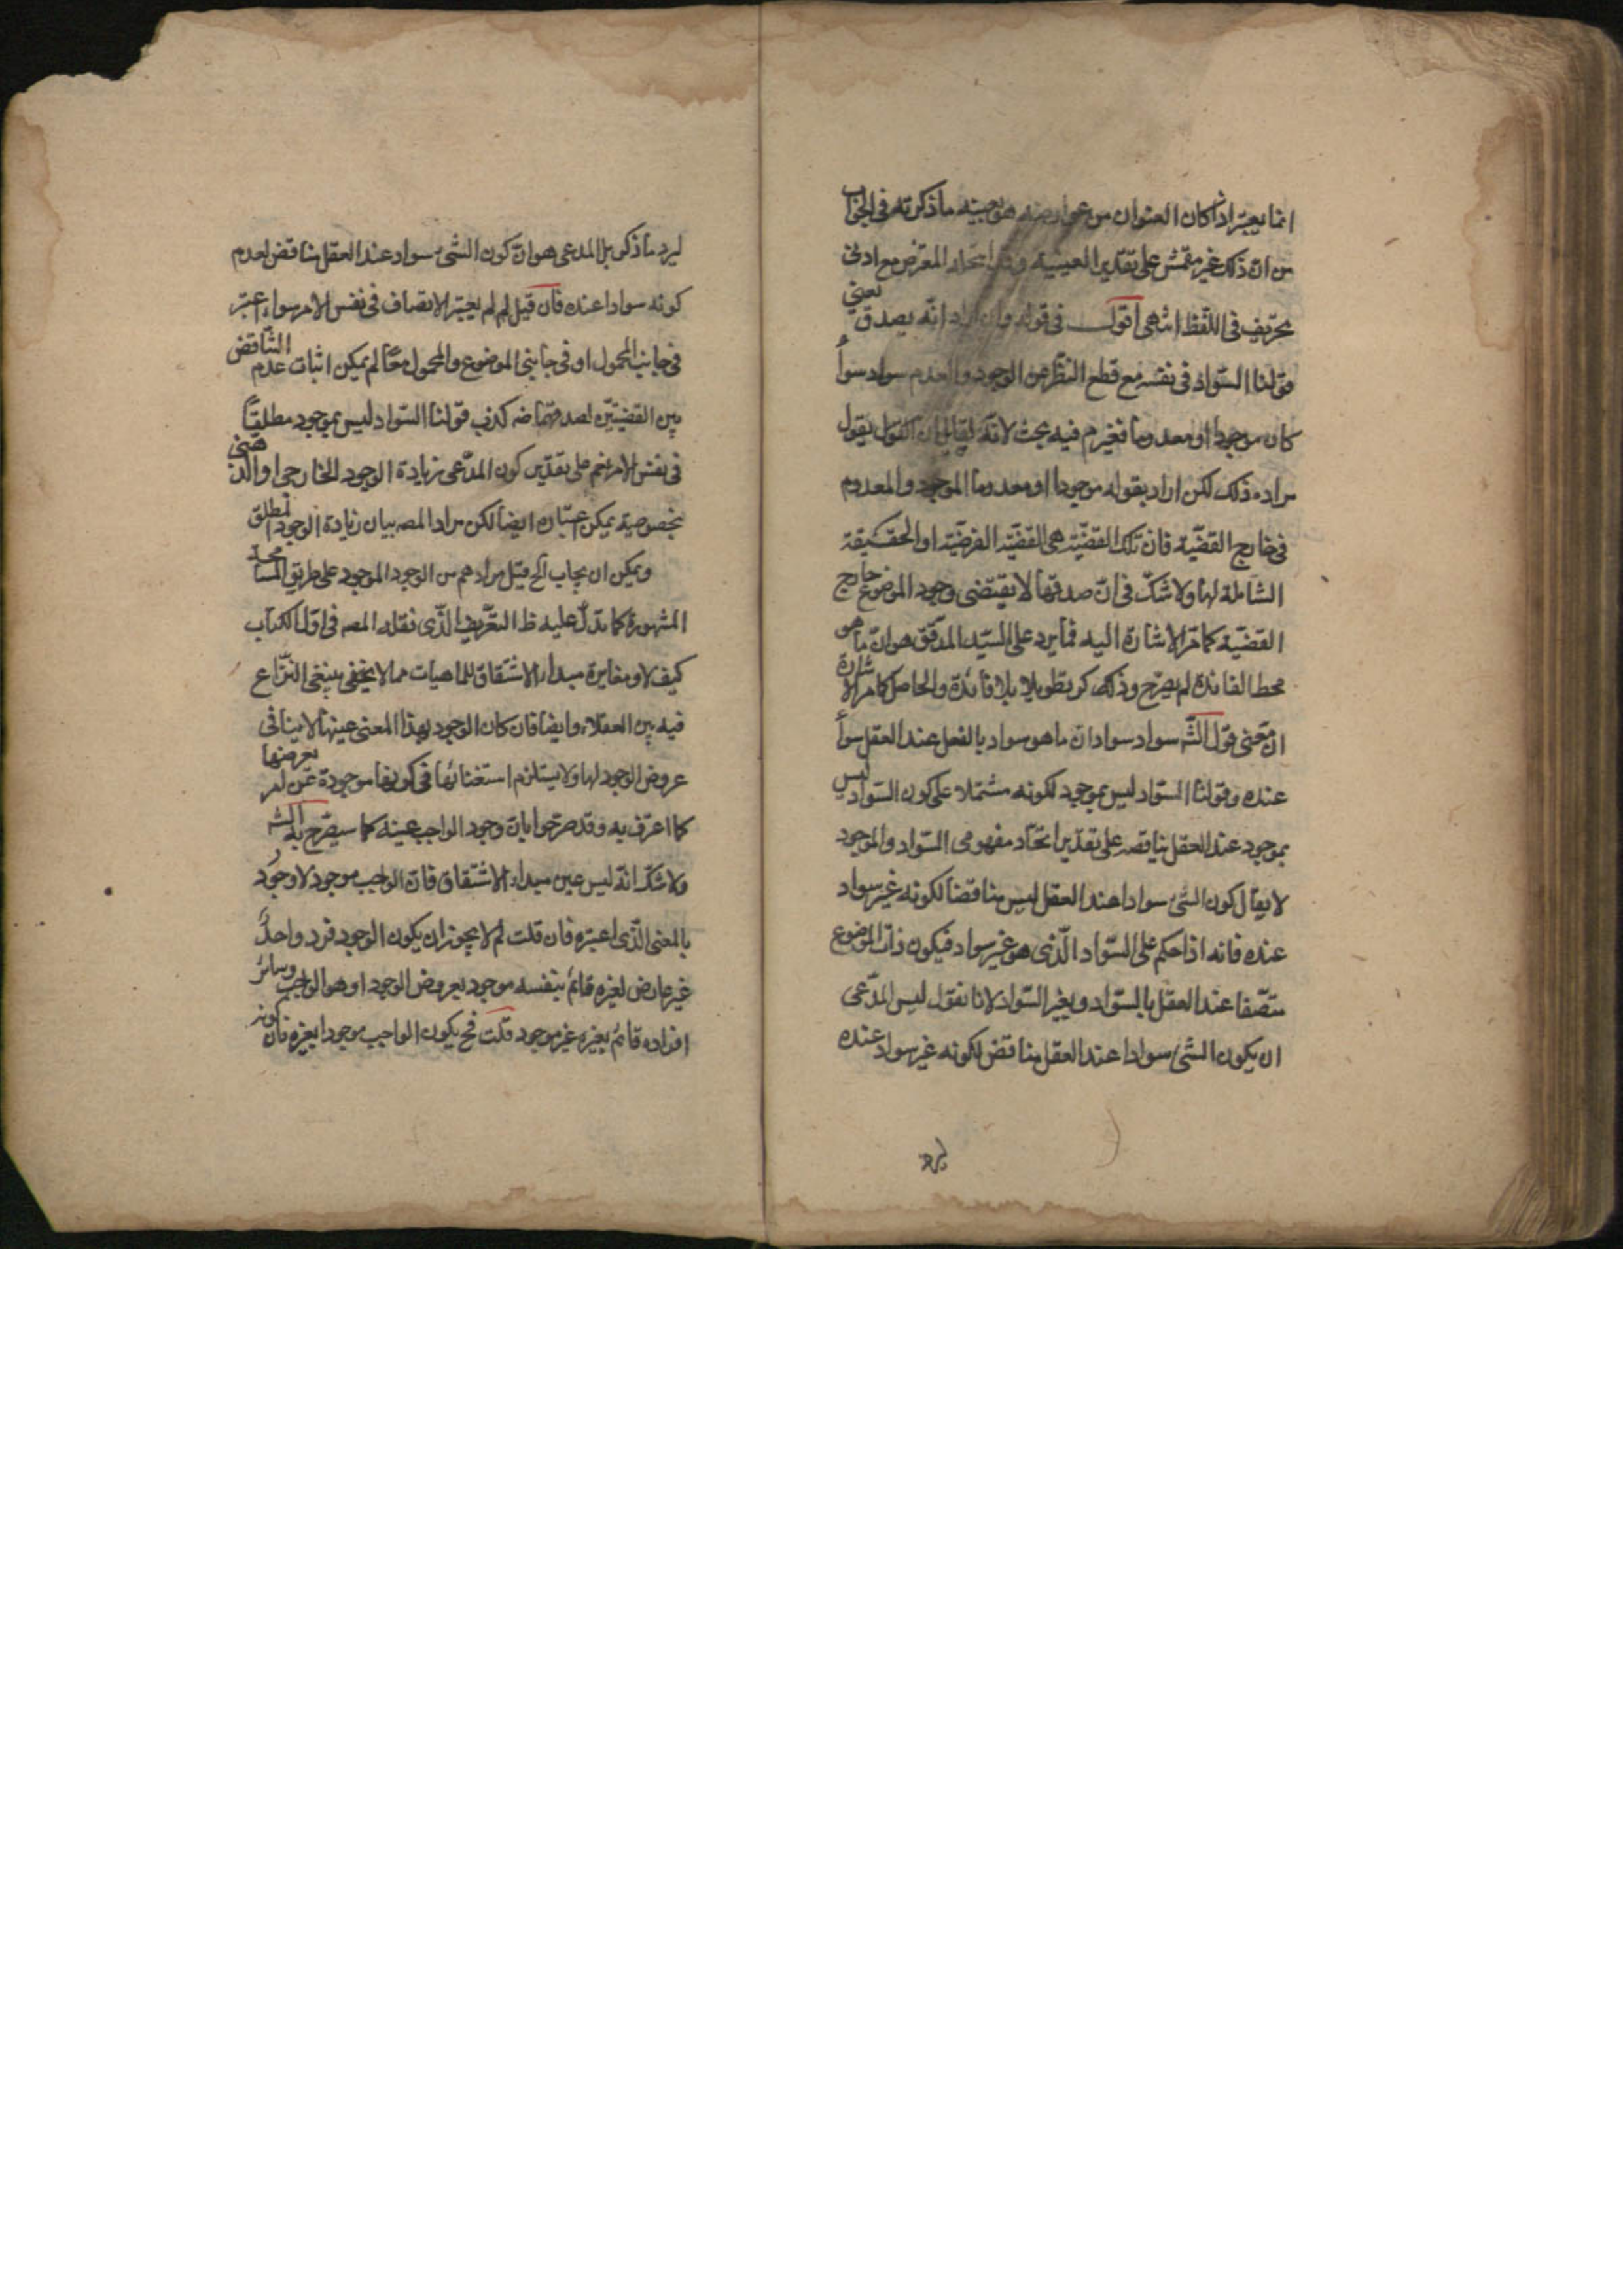 انما يعتبر اذا كان العنوان من عوارضه هو بعينه ما ذكرته فى الجواب
من ان ذلك غير متمش على تقدير العينية وقد المعترض مع ادنى
تحريف فى اللفظ انتهى اقول فى قوله وان اراد انه يصدق يعنى
قولنا السواد فى نفسه مع قطع النظر عن الوجود والعدم سواد سواء
كان موجودا او معدوما فغير م فيه بحث لانه يقول
مراده ذلك لكن اراد بقوله موجودا او معدوما الموجود والمعدوم
فى خارج القضية فان تلك القضية هى القضية الفرضية او الحقيقية
الشاملة لها ولا شك فى ان صدقها لا يقتضى وجود الموضوع خارج
القضية كما مر الاشارة اليه فما يرد على السيد المدقق هو ان ما هو
محط الفائدة لم يصرح وذكر تطويلا بلا فائدة والحاصل كما مر الاشارة
ان معنى قول الشه سواد سواد ان ما هو سواد بالفعل عند العقل سواد
عنده وقولنا السواد ليس بموجود لكونه مشتملا على كون السواد ليس
بموجود عند العقل يناقضه على تقدير اتحاد مفهومى السواد والموجود
لا يقال كون الشئ سوادا عند العقل ليس مناقضا لكونه غير سواد
عنده فانه اذا حكم على السواد الذى هو غير سواد فيكون ذات الموضوع
متصفا عند العقل بالسواد وبغير السواد لانا نقول ليس المدعى
ان يكون الشئ سوادا عند العقل مناقض لكونه غير سواد عنده
ليرد
ليرد ما ذكر بل المدعى هو ان كون الشئ سواد عند العقل مناقض لعدم
كونه سوادا عنده فان قيل لم لم يعتبر الاتصاف فى نفس الامر سواء اعتبر
فى جانب المحمول او فى جانبى الموضوع والمحمول معا لم يمكن اثبات عدم التناقض
بين القضيتين لصدقهما ضه كذب قولنا السواد ليس بموجود مطلقا
فى نفس الامر نعم على تقدير كون المدعى زيادة الوجود الخارجى او الذهنى
بخصوصية يمكن اعتباره ايضا لكن مراد المصه بيان زيادة الوجود المطلق
ويمكن ان يجاب الخ قيل مرادهم من الوجود الموجود على طريق المسامحة
المشهورة كما تدل عليه ظ التعريف الذى نقله المصه فى اول الكتاب
كيف لا ومغايرة مبداء الاشتقاق للماهيات مما لا يخفى ينبغى النزاع
فيه بين العقلاء وايضا فان كان الوجود بهذا المعنى عينها لا ينافى
عروض الوجود لها ولا يستلزم استغنائها فى كونها موجودة عن امر يعرضها
كما اعترف به وقد صرحوا بان وجود الواجب عينه كما سيصرح به الشه
ولا شك انه ليس عين مبداء الاشتقاق فان الواجب موجود لا وجود
بالمعنى الذى اعتبره فان قلت لم لا يجوز ان يكون الوجود فرد واحد
غير عارض لغيره قائم بنفسه موجود بعروض الوجود او هو الواجب وسائر
افراده قائم بغيره غير موجود قلت فح يكون الواجب موجودا بغيره فان كونه